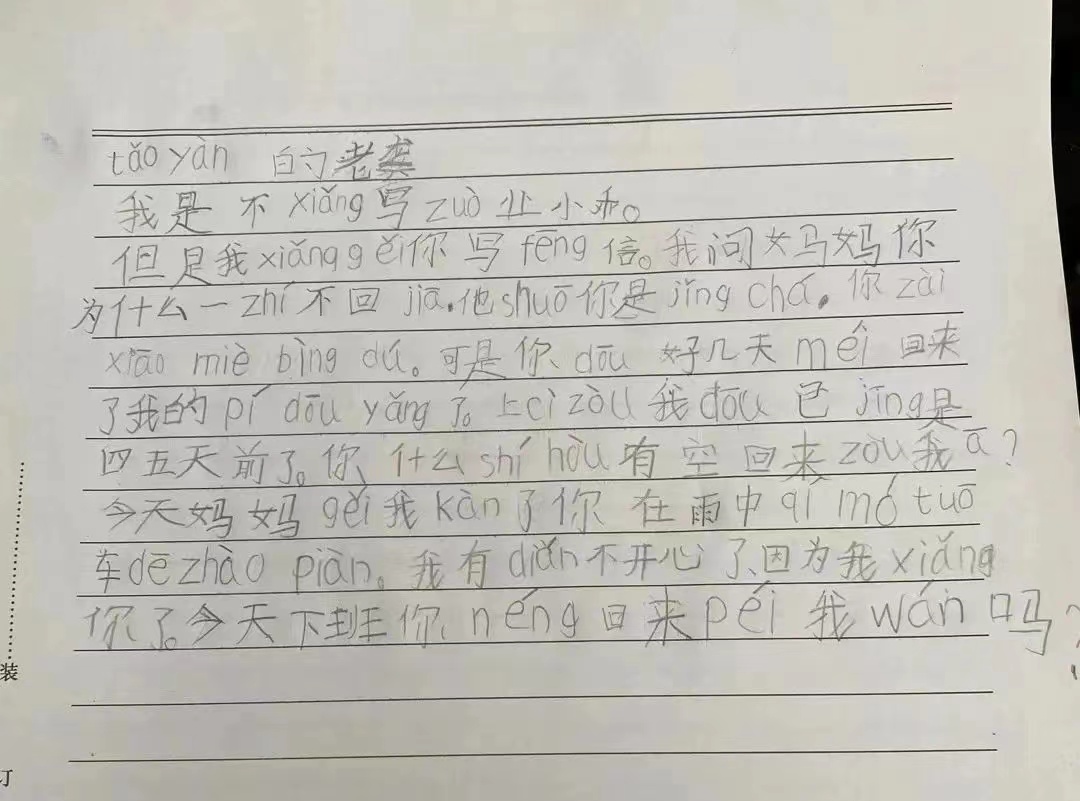 tǎo yàn 的老龚
我是不 xiǎng 写 zuò 业小
但是我 xiǎng gěi 你写 fēng 信。我问妈妈你
为什么一 zhí 不回 jiā。他 shuō 你是 jǐng chá。你 zài
xiāo miè bìng dú。可是你 dōu 好几天 méi 回来
了我的 pí dōu yǎng 了。上 cì zòu 我 dōu 已 jīng 是
四五天前了。你什么 shí hòu 有空回来 zòu 我 ā？
今天妈妈 gěi 我 kàn 了你在雨中 qí mó tuō
车 dē zhào piàn。我有 diǎn 不开心了、因为我 xiǎng
你了。今天下班你 néng 回来 péi 我 wán 吗？
装
订